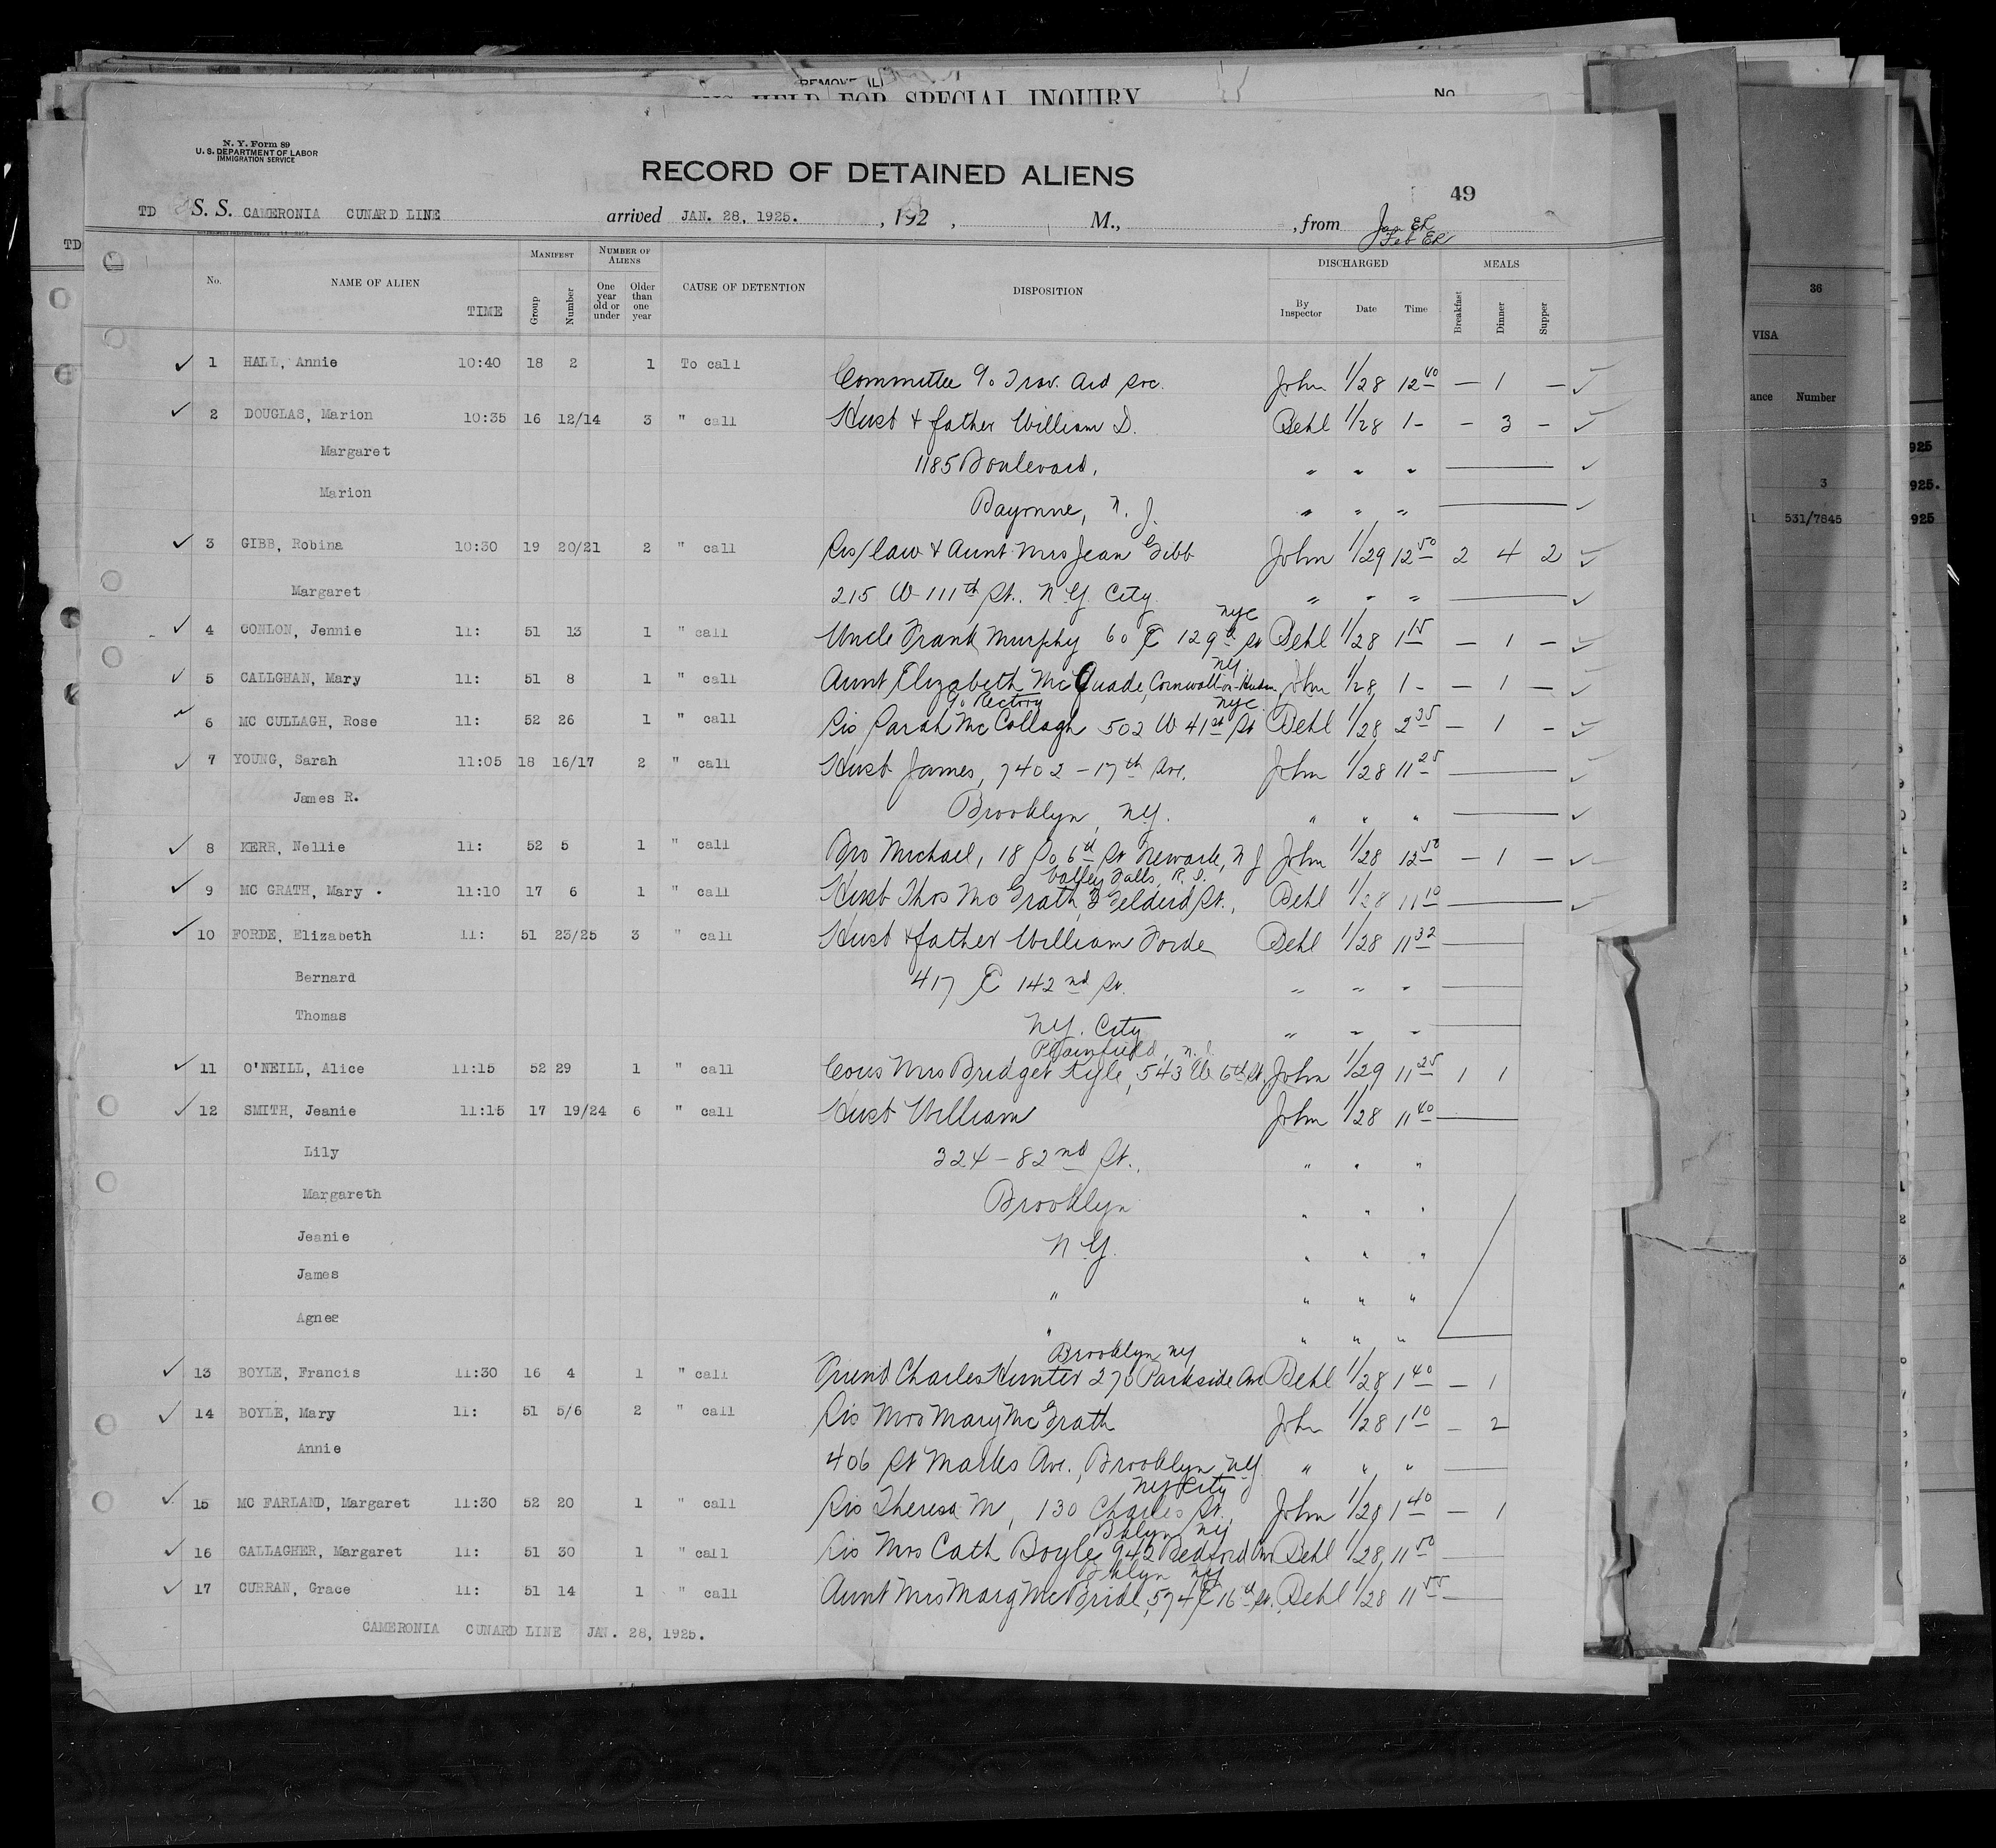 REMOVE
HELD FOR SPECIAL INQUIRY
No.
N. Y. Form 89
U. S. DEPARTMENT OF LABOR
IMMIGRATION SERVICE
RECORD OF DETAINED ALIENS
49
TD S. S. CAMERONIA CUNARD LINE arrived JAN. 28, 1925. , 192 , M., , from
TD
No. NAME OF ALIEN TIME MANIFEST Group Number NUMBER OF ALIENS One year old or under Older than one year CAUSE OF DETENTION DISPOSITION DISCHARGED By Inspector Date Time MEALS Breakfast Dinner Supper
1 HALL, Annie 10:40 18 2 1 To call Committee c/o Trav. Aid Soc. John 1/28 12 40 – 1 –
2 DOUGLAS, Marion 10:35 16 12/14 3 " call Husb & father William D. Behl 1/28 1- – 3 –
Margaret 1185 Boulevard, " " "
Marion Bayonne, N. J. " " "
3 GIBB, Robina 10:30 19 20/21 2 " call Sis/law & Aunt Mrs Jean Gibb John 1/29 12 50 2 4 2
Margaret 215 W 111th St. N.Y. City " " "
NYC
4 CONLON, Jennie 11: 51 13 1 " call Uncle Frank Murphy 60 E 129th St Behl 1/28 1 15 – 1 –
NY.
5 CALLGHAN, Mary 11: 51 8 1 " call Aunt Elizabeth McQuade, Cornwall-on-Hudson, John 1/28 1- – 1 –
c/o Rectory NYC
6 MC CULLAGH, Rose 11: 52 26 1 " call Sis Sarah McCollagh 502 W 41st St Behl 1/28 2 35 – 1 –
7 YOUNG, Sarah 11:05 18 16/17 2 " call Husb James, 7402 - 17th Ave. John 1/28 11 25
James R. Brooklyn, N.Y. " " "
8 KERR, Nellie 11: 52 5 1 " call Bro Michael, 18 So 6th St Newark, N J John 1/28 12 50 – 1 –
Valley Falls, R. I.
9 MC GRATH, Mary . 11:10 17 6 1 " call Husb Thos McGrath, St., Behl 1/28 11 10
10 FORDE, Elizabeth 11: 51 23/25 3 " call Husb & father William Forde Behl 1/28 11 32
Bernard 417 E 142nd St. " " "
Thomas N.Y. City " " "
Plainfield, N. J.
11 O'NEILL, Alice 11:15 52 29 1 " call Cous Mrs Bridget Kyle, 543 W 6th St, John 1/29 11 25 1 1
12 SMITH, Jeanie 11:15 17 19/24 6 " call Husb William John 1/28 11 40
Lily 324 - 82nd St., " " "
Margareth Brooklyn " " "
Jeanie N.Y. " " "
James " " " "
Agnes " " " "
Brooklyn NY
13 BOYLE, Francis 11:30 16 4 1 " call Friend Charles Hunter 270 Parkside Ave Behl 1/28 1 40 – 1
14 BOYLE, Mary 11: 51 5/6 2 " call Sis Mrs Mary McGrath John 1/28 1 10 – 2
Annie 406 St Marks Ave., Brooklyn N.Y. " " "
NY City
15 MC FARLAND, Margaret 11:30 52 20 1 " call Sis Theresa M, 130 Charles St., John 1/28 1 40 – 1
Bklyn NY
16 GALLAGHER, Margaret 11: 51 30 1 " call Sis Mrs Cath Boyle 942 Bedford Ave Behl 1/28 11 50
Bklyn NY
17 CURRAN, Grace 11: 51 14 1 " call Aunt Mrs Marg McBride, 574 E 16th St. Behl 1/28 11 55
CAMERONIA CUNARD LINE JAN. 28, 1925.
36
VISA
ance Number
925
3 925.
531/7845 925